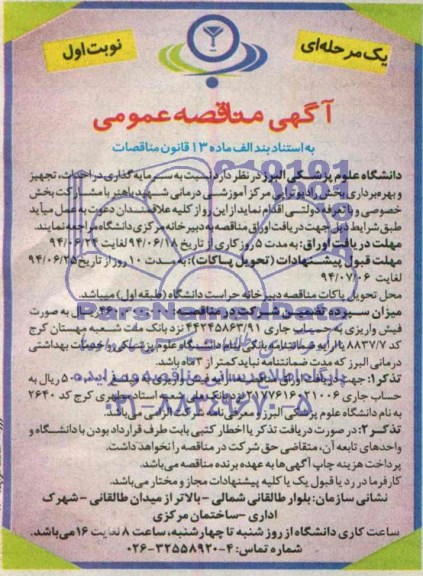 یک مرحله‌ای
نوبت اول
آگهی مناقصه عمومی
به استناد بند الف ماده ۱۳ قانون مناقصات
دانشگاه علوم پزشکی البرز در نظر دارد نسبت به سرمایه گذاری در احداث، تجهیز
و بهره برداری بخش رادیوتراپی مرکز آموزشی درمانی شهید باهنر با مشارکت بخش
خصوصی و با تعرفه دولتی اقدام نماید از این رو از کلیه علاقمندان دعوت به عمل میآید
طبق شرایط ذیل جهت دریافت اوراق مناقصه به دبیرخانه مرکزی دانشگاه مراجعه نمایند.
مهلت دریافت اوراق: به مدت ۵ روز کاری از تاریخ ۹۴/۰۶/۱۸ لغایت ۹۴/۰۶/۲۴
مهلت قبول پیشنهادات (تحویل پاکات): به مدت ۱۰ روز از تاریخ ۹۴/۰۶/۲۵
لغایت ۹۴/۰۷/۰۶
محل تحویل پاکات مناقصه دبیرخانه حراست دانشگاه (طبقه اول) میباشد.
میزان سپرده تضمین شرکت در مناقصه: ریال به صورت
فیش واریزی به حساب جاری ۴۴۲۴۵۸۶۳/۹۱ نزد بانک ملت شعبه مهستان کرج
کد ۸۸۳۷/۷ یا ارایه ضمانتنامه بانکی بنام دانشگاه علوم پزشکی و خدمات بهداشتی
درمانی البرز که مدت ضمانتنامه نباید کمتر از ۳ ماه باشد.
تذکر۱: جهت دریافت اوراق مناقصه فیش واریزی به مبلغ ریال به
حساب جاری ۲۱۷۷۶۱۶۰۲۱۰۰۶ نزد بانک ملی شعبه استاد مطهری کرج کد ۲۶۴۰
به نام دانشگاه علوم پزشکی البرز و معرفی نامه شرکت الزامی می باشد.
تذکر۲: در صورت دریافت تذکر یا اخطار کتبی بابت طرف قرارداد بودن با دانشگاه و
واحدهای تابعه آن، متقاضی حق شرکت در مناقصه را نخواهد داشت.
پرداخت هزینه چاپ آگهی ها به عهده برنده مناقصه می‌باشد.
کارفرما در رد یا قبول یک یا کلیه پیشنهادات مجاز و مختار می‌باشد.
نشانی سازمان: بلوار طالقانی شمالی - بالاتر از میدان طالقانی - شهرک
اداری - ساختمان مرکزی
ساعت کاری دانشگاه از روز شنبه تا چهارشنبه، ساعت ۸ لغایت ۱۶ می‌باشد.
شماره تماس: ۴-۳۲۵۵۸۹۲۰-۰۲۶
ParsNamadData
پایگاه اطلاع رسانی مناقصه و مزایده
۰۲۱-۸۸۳۴۹۶۷۰-۵